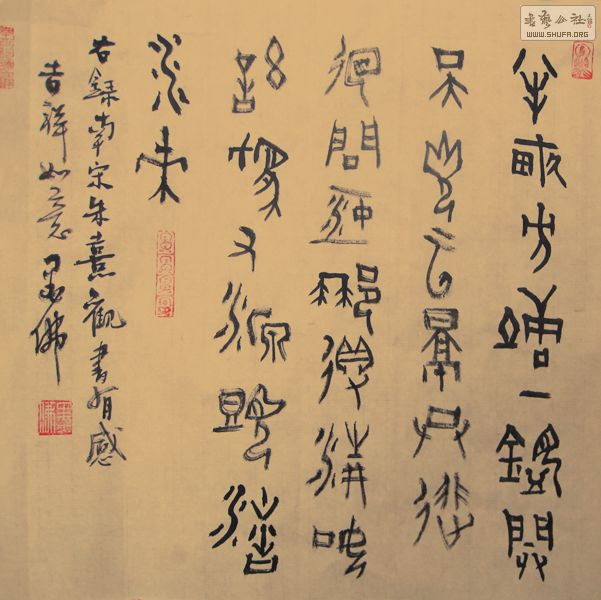 半畝方塘一鑑開
天光云景共徘
徊問渠那得清如
許為又源頭活
水來
右錄南宋朱熹觀書有感
吉祥如意 墨佛
書藝公社
WWW.SHUFA.ORG